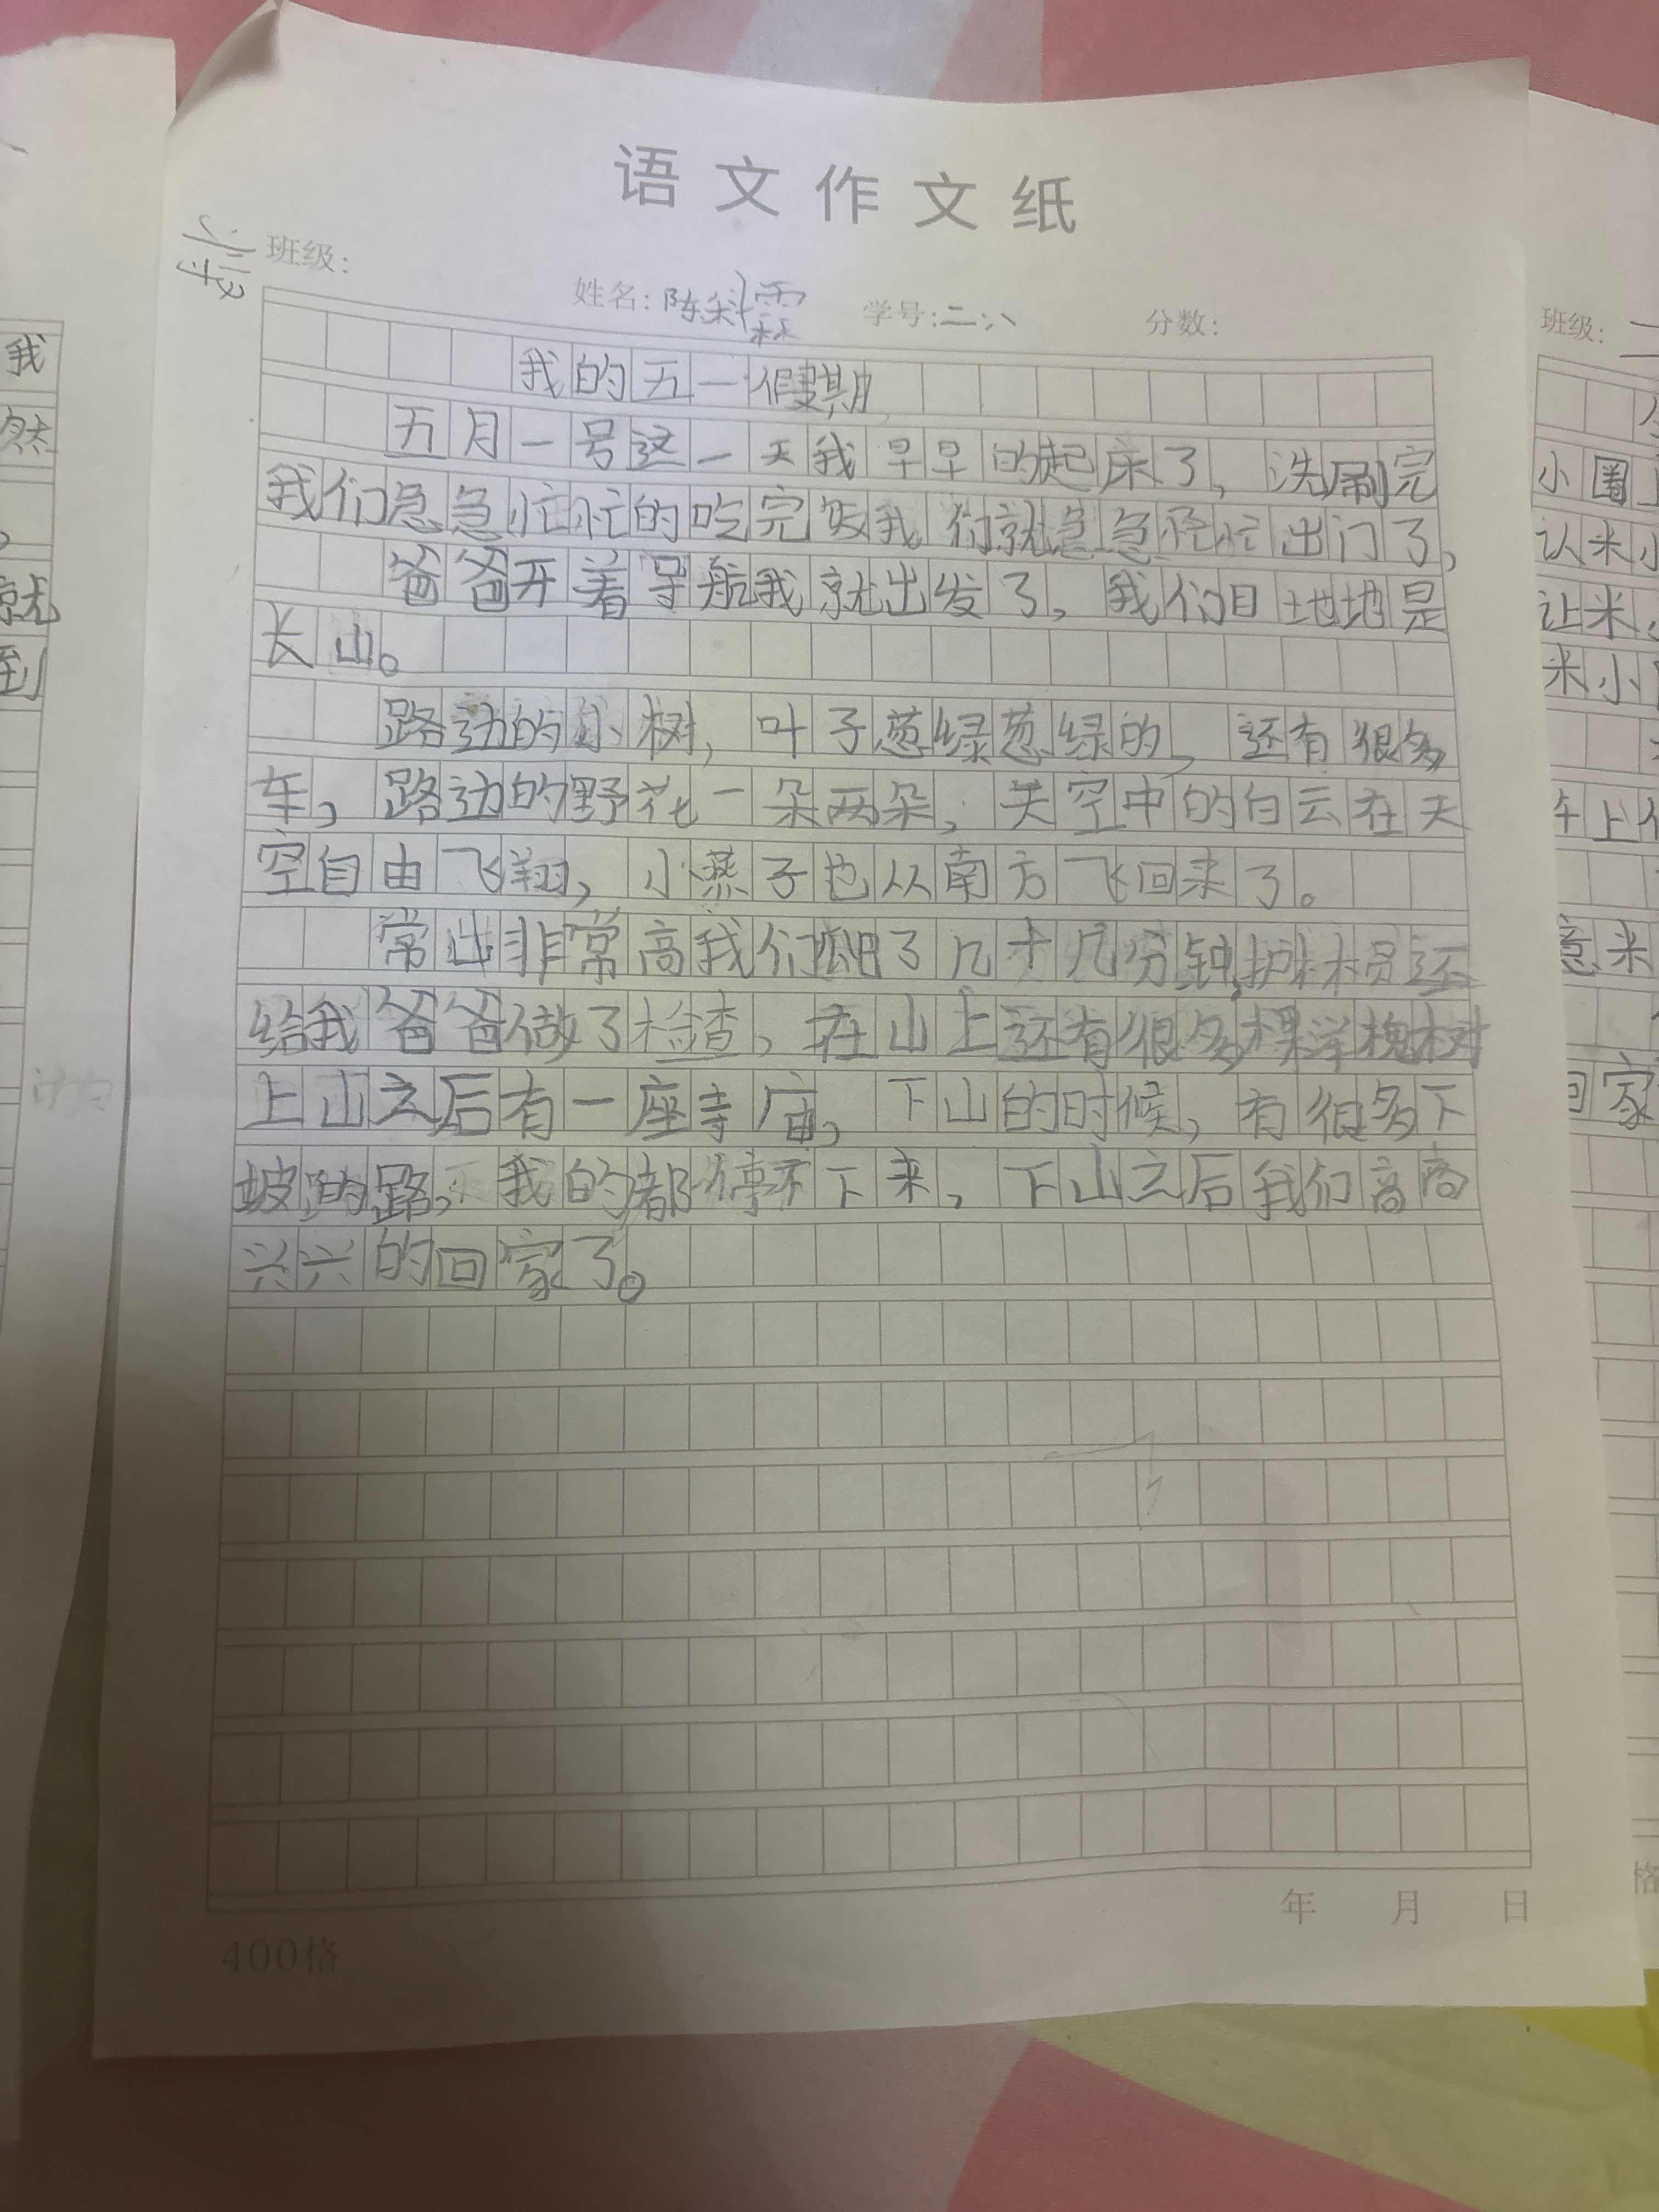 语文作文纸
班级:
姓名:陈科霖 学号:二八 分数:
我的五一假期
五月一号这一天我早早的起床了,洗刷完
我们急急忙忙的吃完饭我们就急急忙忙出门了,
爸爸开着导航我就出发了,我们目地地是
长山。
路边的小树,叶子葱绿葱绿的,还有很多
车,路边的野花一朵两朵,天空中的白云在天
空自由飞翔,小燕子也从南方飞回来了。
常山非常高我们爬了几十几分钟,护林员还
给我爸爸做了检查,在山上还有很多棵洋槐树
上山之后有一座寺庙,下山的时候,有很多下
坡的路,我的都停不下来,下山之后我们高高
兴兴的回家了。
年 月 日
400格
我
然
就
到
班级:
小圈
认米小
让米
米小
午上
意米
回家
格